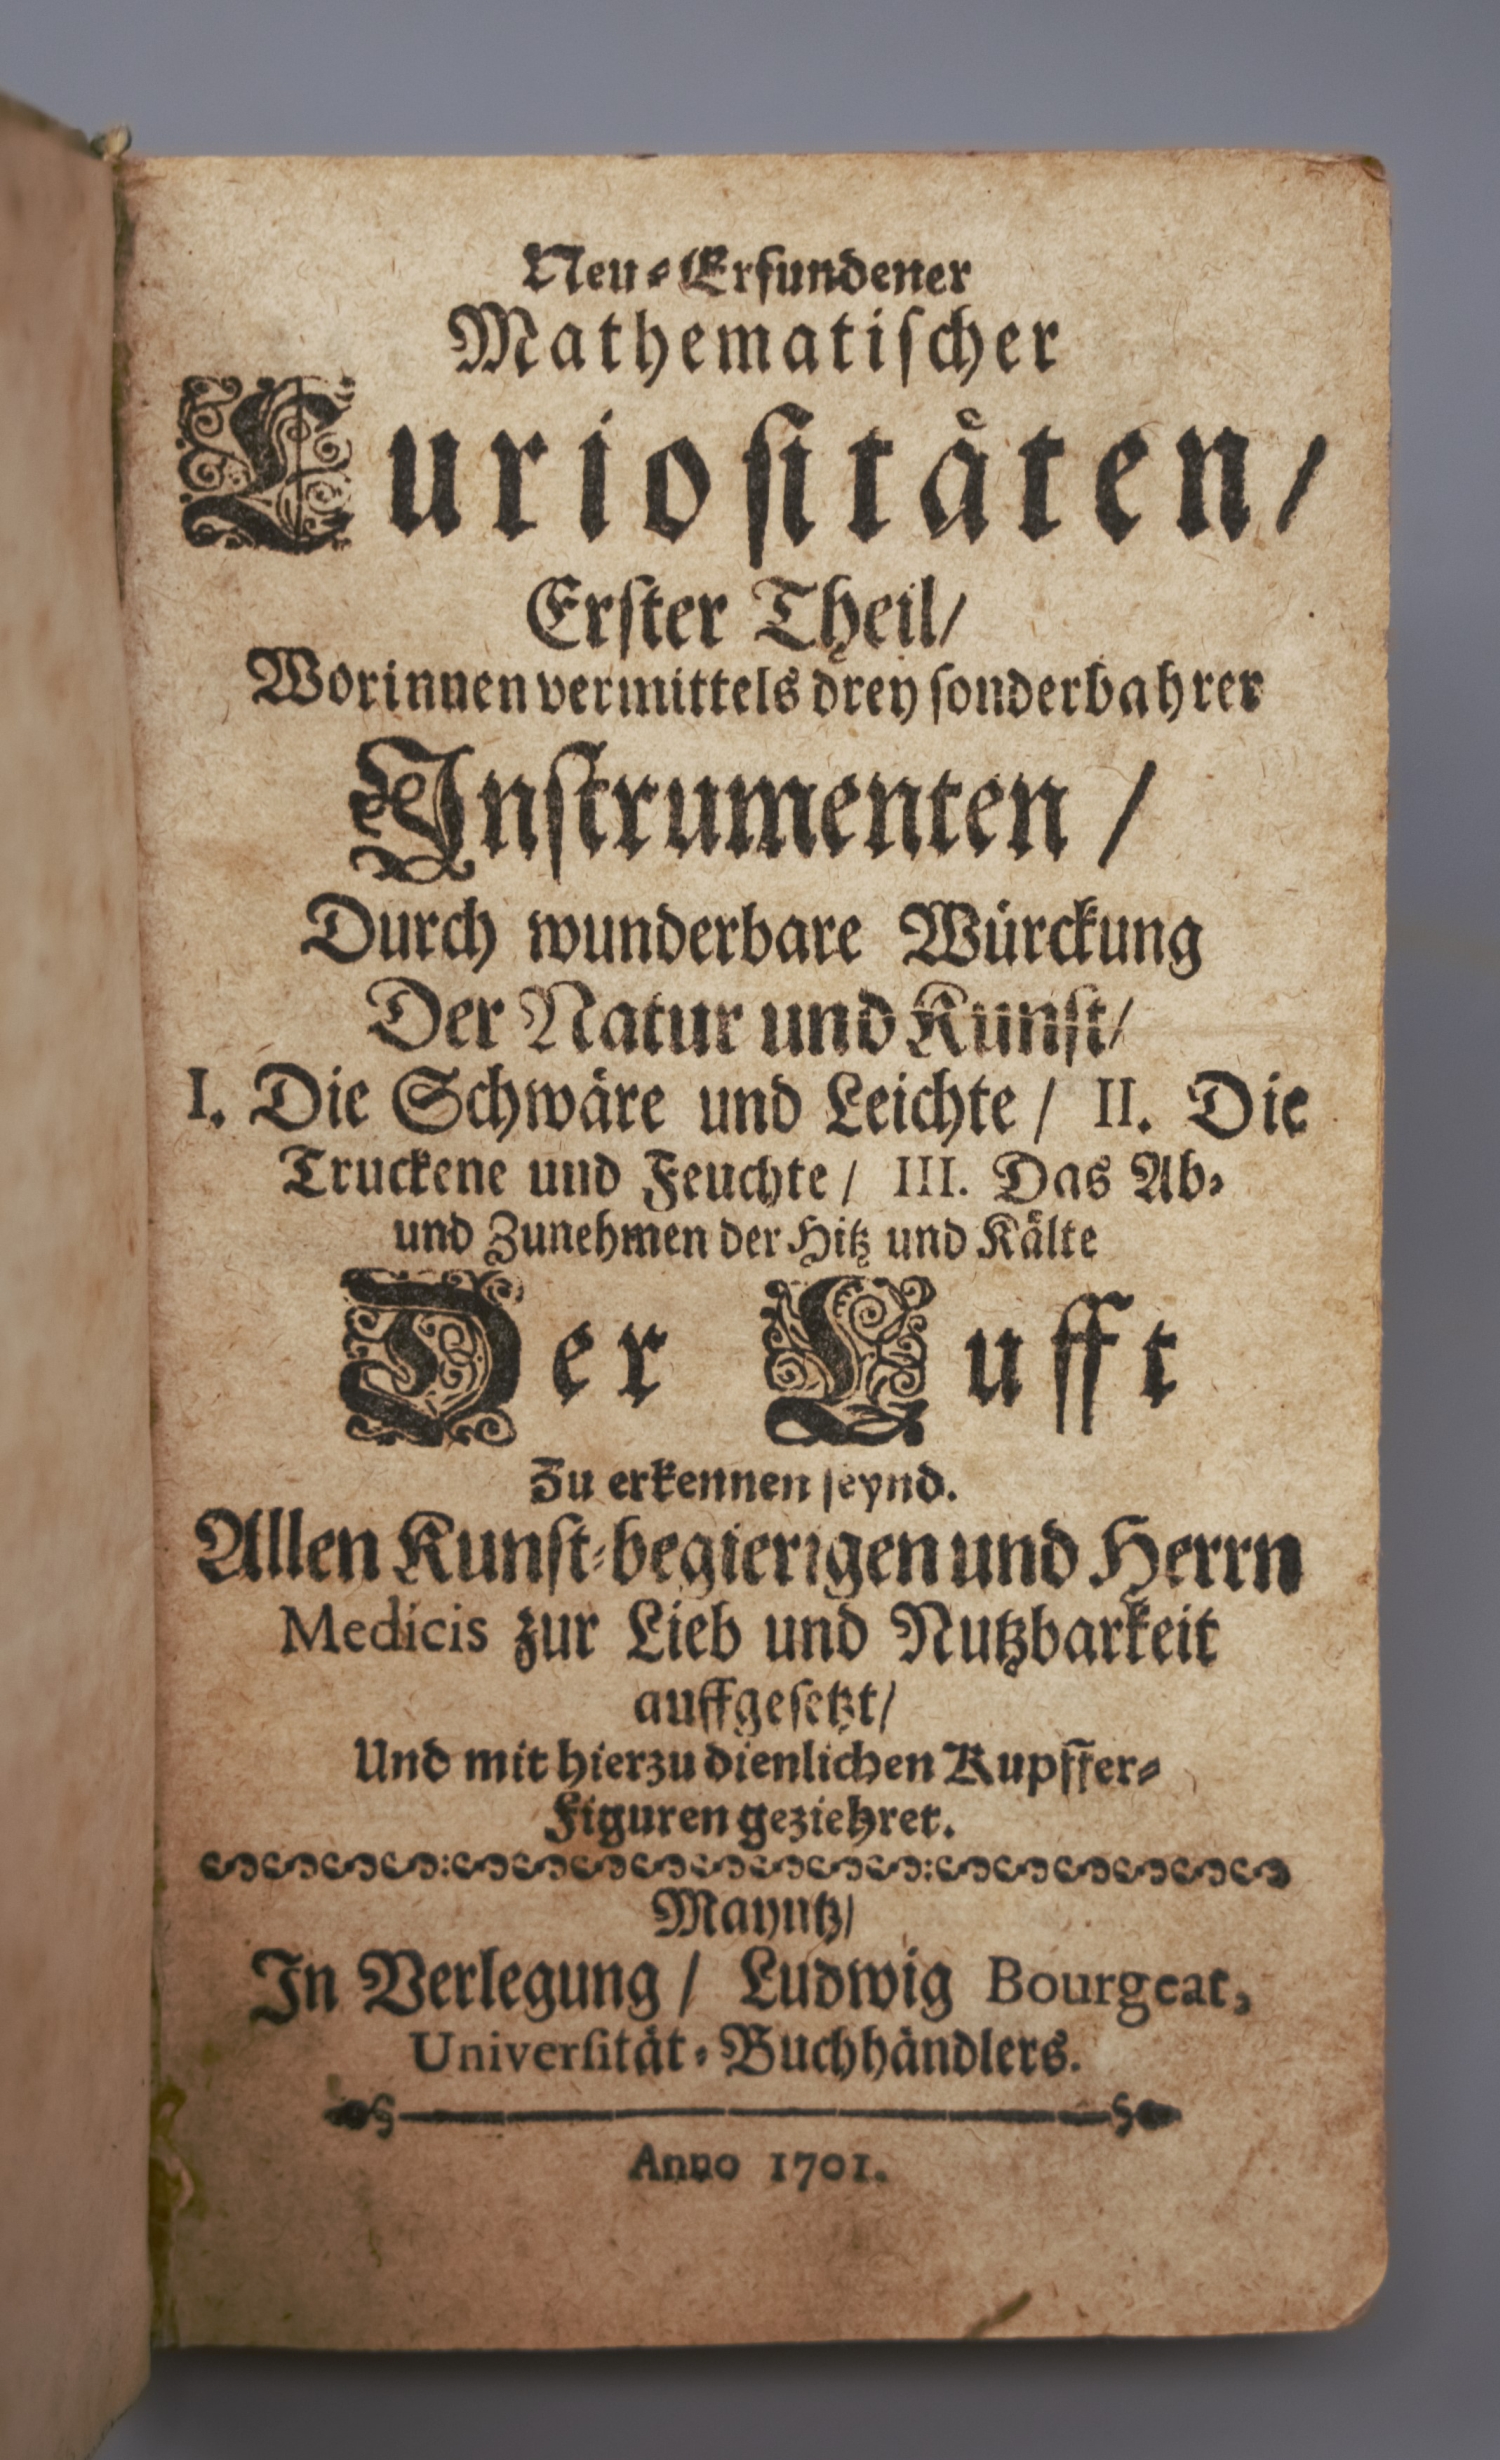 Neu-Erfundener
Mathematiſcher
Curioſitåten/
Erſter Theil/
Worinnen vermittels drey ſonderbahrer
Inſtrumenten /
Durch wunderbare Würckung
Der Natur und Kunſt/
I. Die Schwäre und Leichte / II. Die
Truckene und Feuchte / III. Das Ab-
und Zunehmen der Hitz und Kälte
Der Lufft
Zu erkennen ſeynd.
Allen Kunſt-begierigen und Herrn
Medicis zur Lieb und Nutzbarkeit
auffgeſetzt/
Und mit hierzu dienlichen Kupffer-
Figuren geziehret.
Mayntz/
In Verlegung / Ludwig Bourgeat,
Univerſität-Buchhändlers.
Anno 1701.